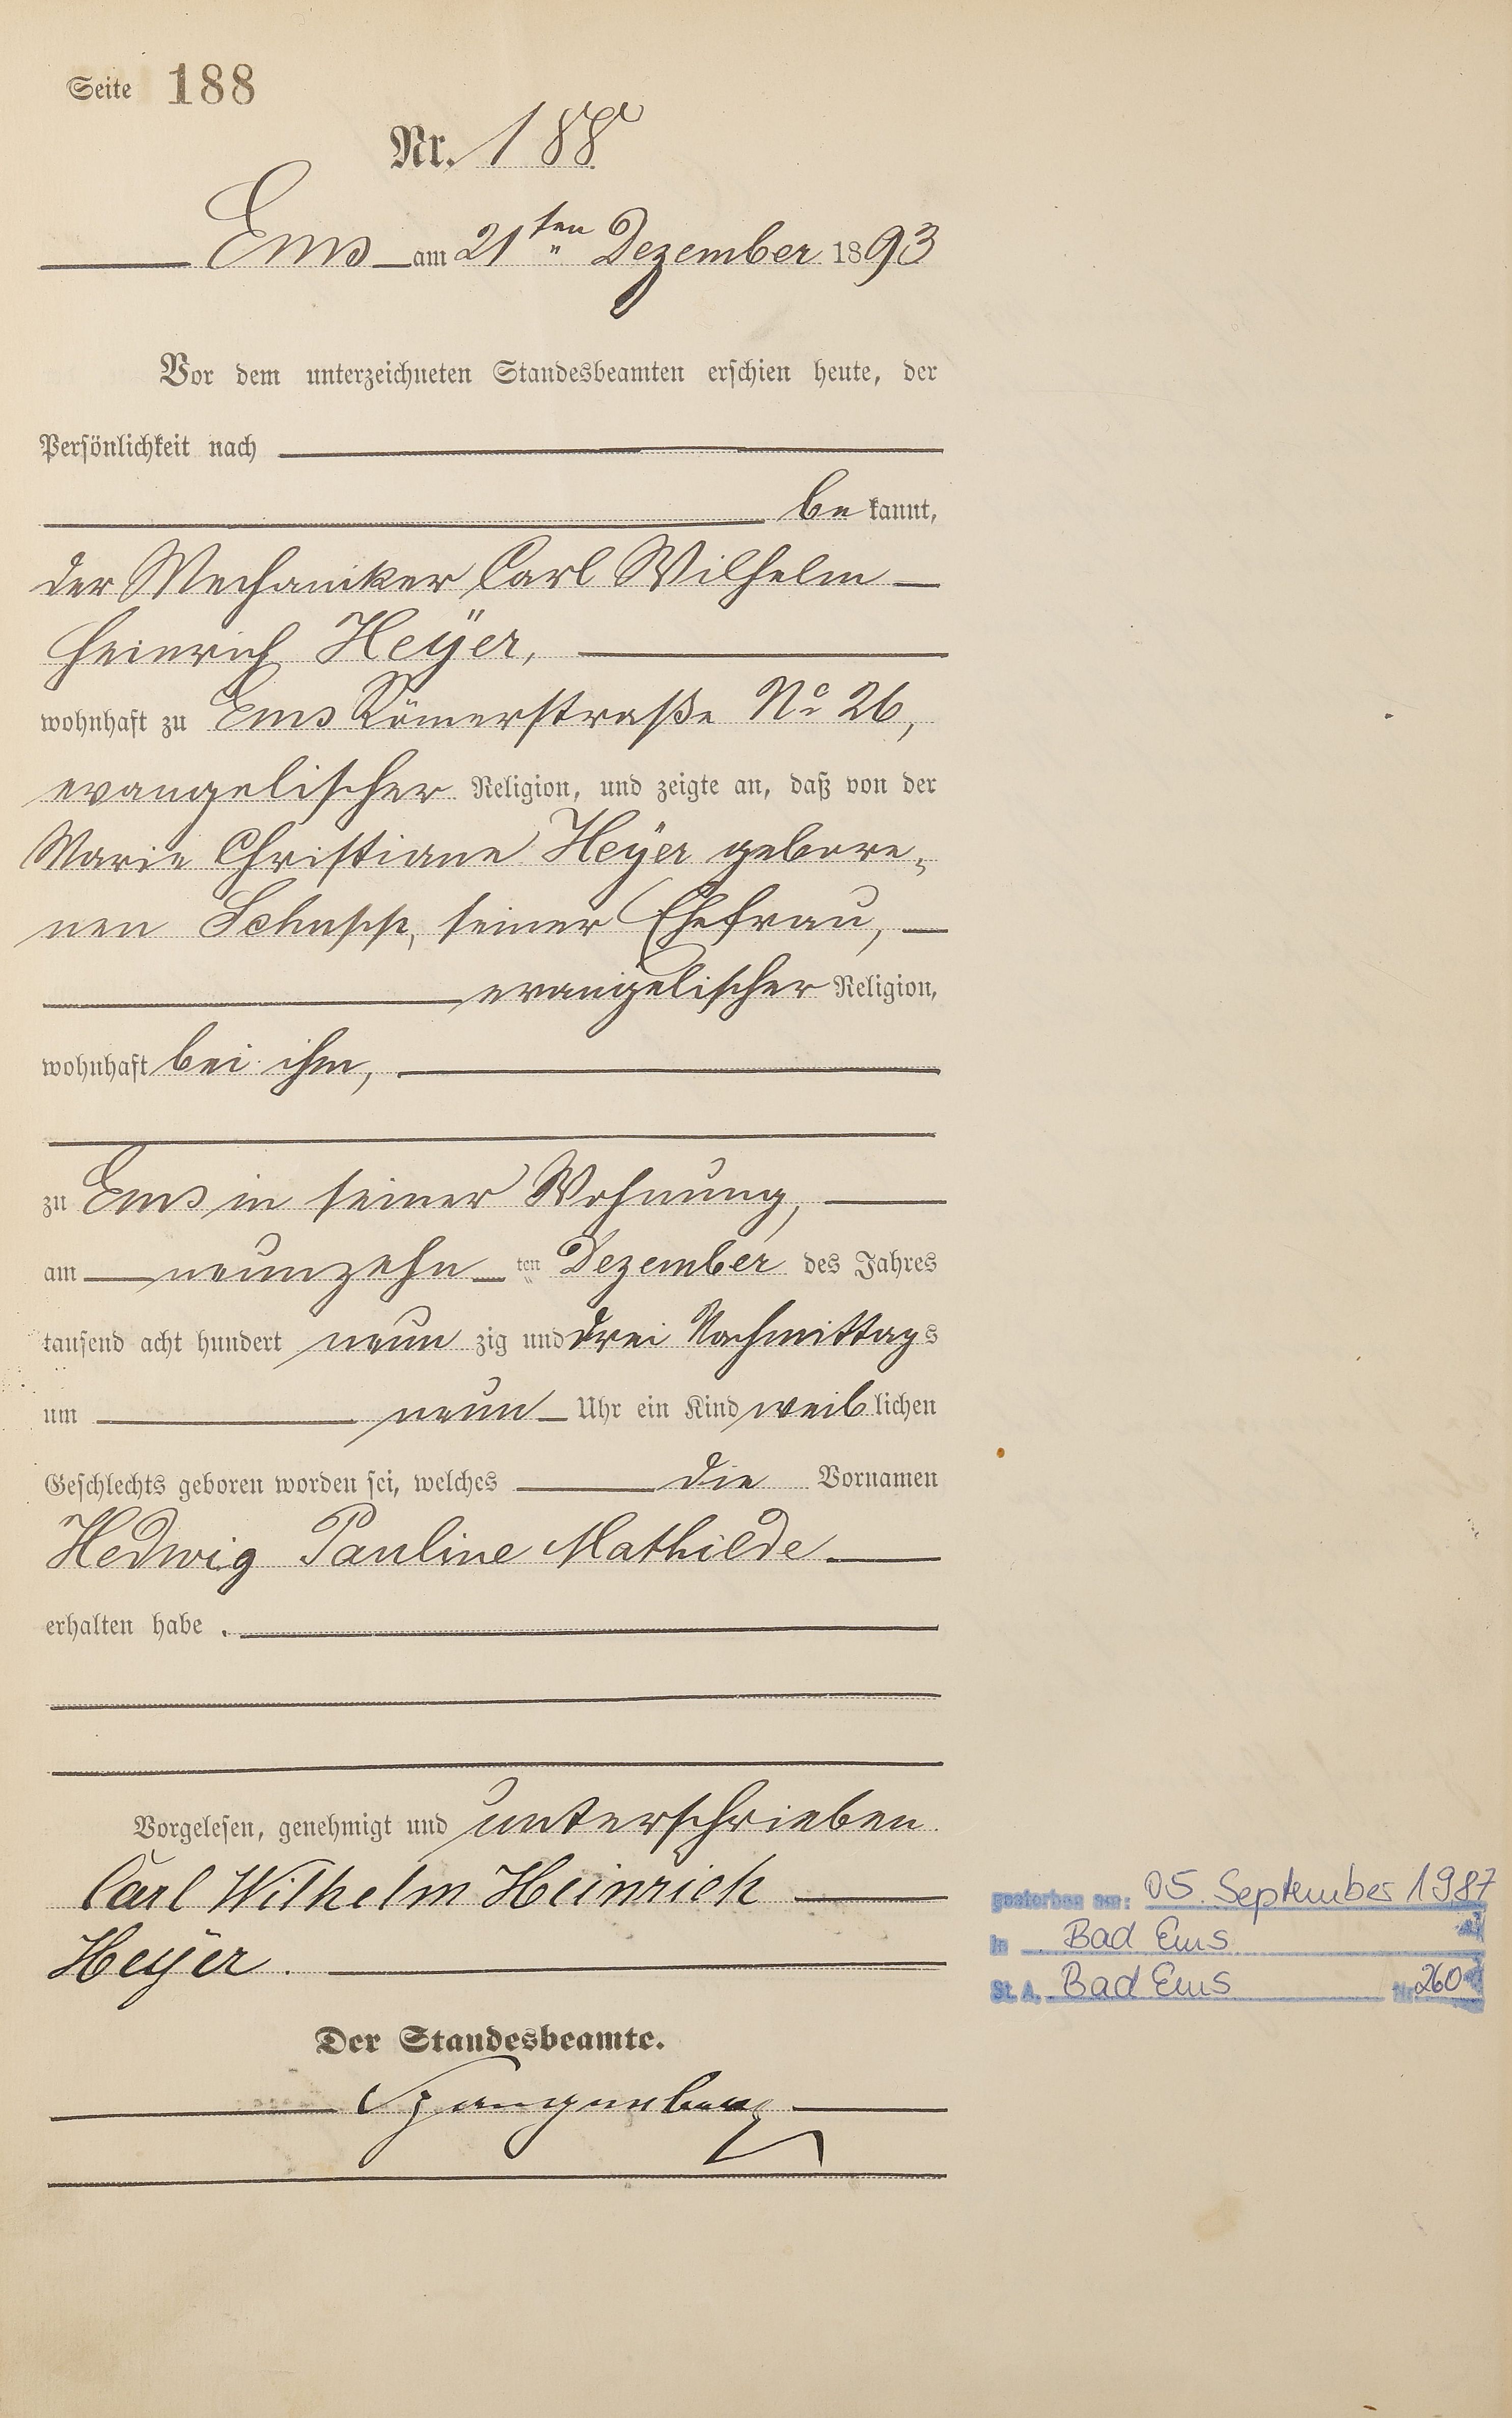 Seite 188
Nr. 188
Ems am 21ten Dezember 1893
Vor dem unterzeichneten Standesbeamten erschien heute, der
Persönlichkeit nach
bekannt,
der Mechaniker Carl Wilhelm
Heinrich Heÿer,
wohnhaft zu Ems Römerstraße No 26,
evangelischer Religion, und zeigte an, daß von der
Marie Christiane Heÿer gebore-
nen Schupp, seiner Ehefrau,
evangelischer Religion,
wohnhaft bei ihm,
zu Ems in seiner Wohnung,
am neunzehn ten Dezember des Jahres
tausend acht hundert neun zig und drei Nachmittags
um neun Uhr ein Kind weiblichen
Geschlechts geboren worden sei, welches die Vornamen
Hedwig Pauline Mathilde
erhalten habe.
Vorgelesen, genehmigt und unterschrieben.
Carl Wilhelm Heinrich
Heÿer.
Der Standesbeamte.
Spangenberg
gestorben am: 05. September 1987
in Bad Ems
St. A. Bad Ems Nr. 260